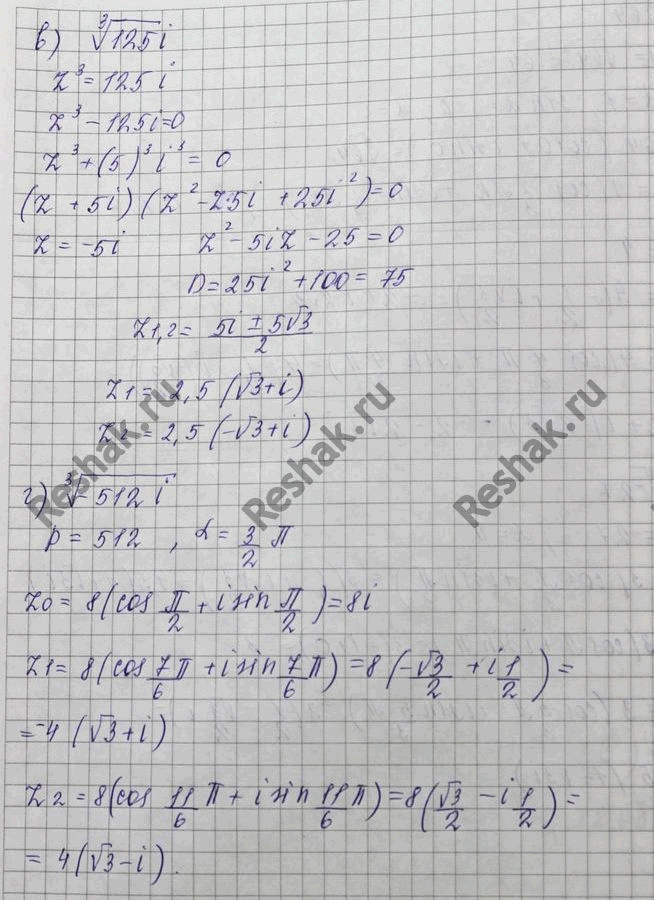 в) ∛125i
z³ = 125i
z³ - 125i = 0
z³ + (5)³i³ = 0
(z + 5i)(z² - z·5i + 25i²) = 0
z = -5i z² - 5iz - 25 = 0
D = 25i² + 100 = 75
z1,2 = (5i ± 5√3)/2
z1 = 2,5(√3+i)
z2 = 2,5(-√3+i)
г) ∛-512i
p = 512, α = 3/2 π
z0 = 8(cos π/2 + i sin π/2) = 8i
z1 = 8(cos 7/6 π + i sin 7/6 π) = 8(-√3/2 + i 1/2) =
= -4(√3+i)
z2 = 8(cos 11/6 π + i sin 11/6 π) = 8(√3/2 - i 1/2) =
= 4(√3-i).
Reshak.ru
Reshak.ru
Reshak.ru